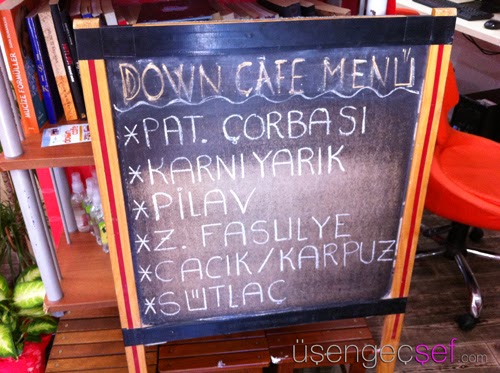 DOWN CAFE MENÜ
*PAT. ÇORBASI
*KARNIYARIK
*PİLAV
*Z. FASULYE
*CACIK/KARPUZ
*SÜTLAÇ
üşengeçşef.com